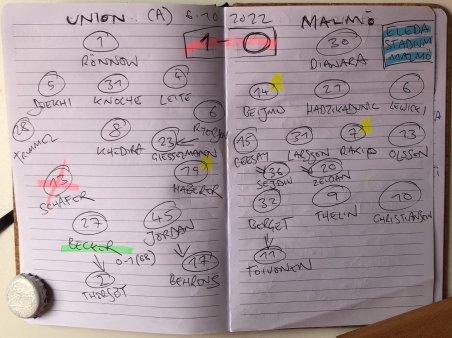 UNION (A) 6·10 2022 MALMÖ
1-0
ELEDA
STADIUM
MALMÖ
1
RÖNNOW
30
5 31 4
DOEKHI KNOCHE LEITE
14 21 6
BEIJMO LEWICKI
28 8 23 6
TRIMMEL KHEDIRA GIESSELMANN RYERSON
15 31 7 13
CEESAY LARSSON RAKIP OLSSON
13 19
SCHÄFER HABERER
36 20
SEJDIU ZEIDAN
27 45
BECKER JORDAN
0-1 (68)
32 9 10
BERGET THELIN CHRISTIANSEN
2 17
BEHRENS
11
TOIVONEN